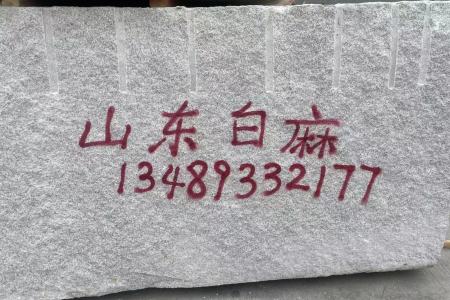 山东白麻
13489332177